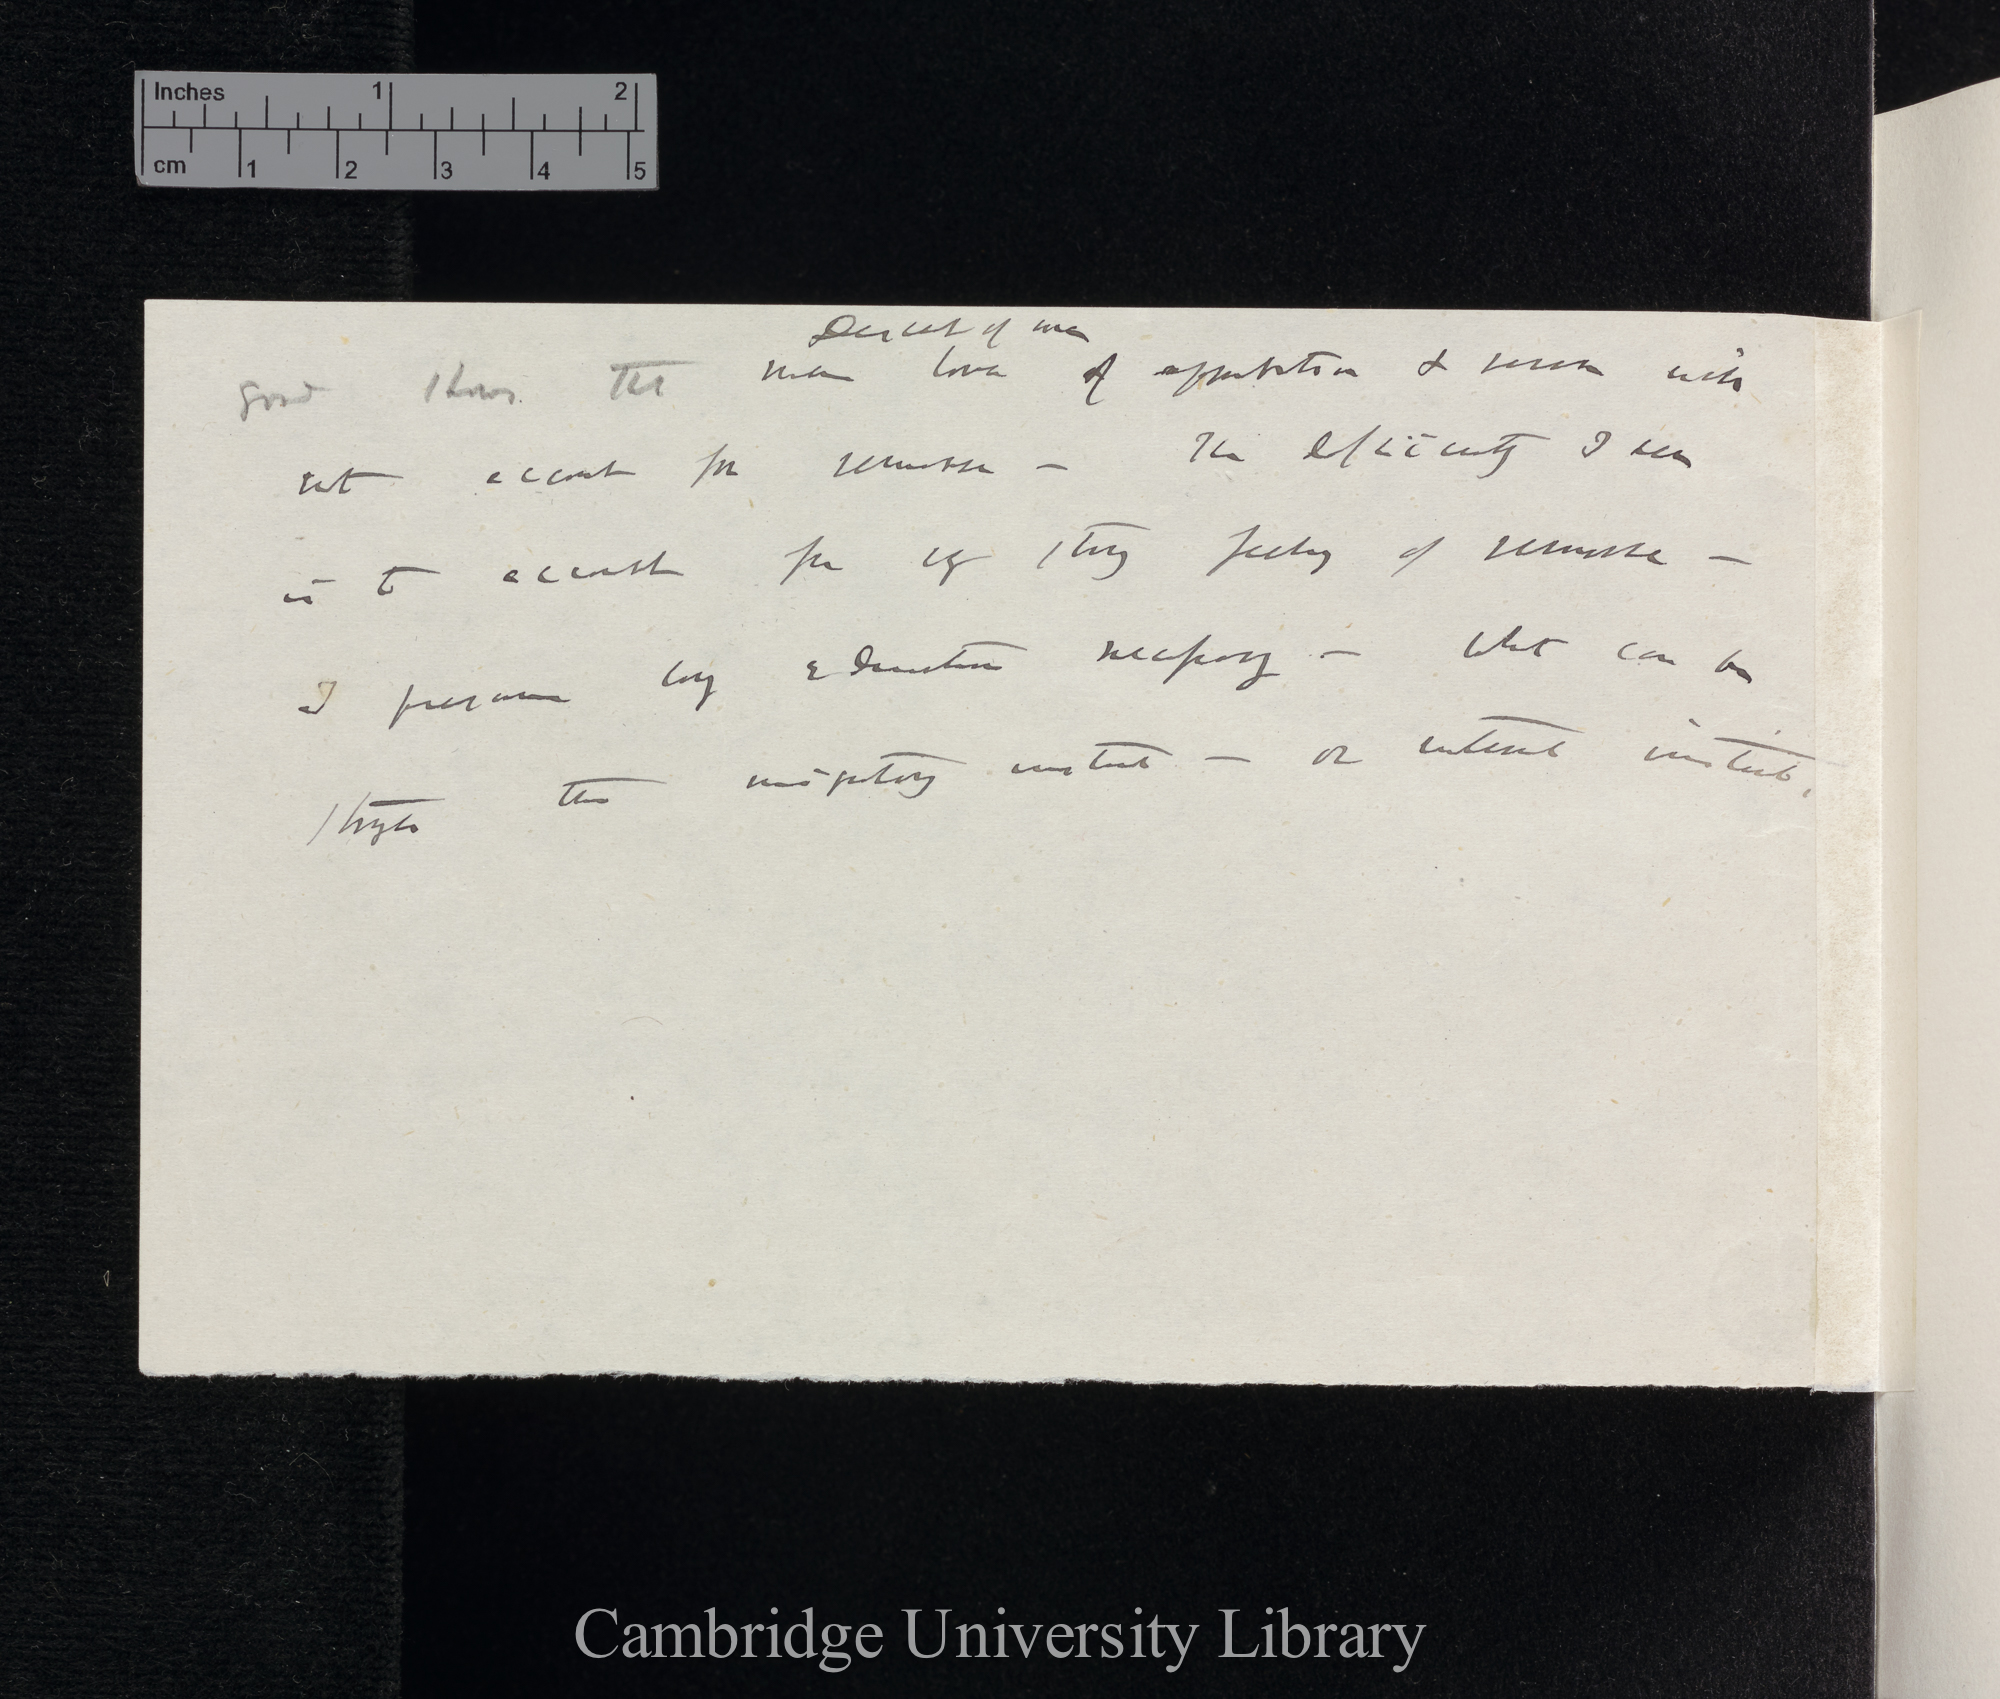 Inches 1 2
cm 1 2 3 4 5
Descent of man
good shows that mere love of approbation & reason will
not account for remorse — The difficulty I see
is to account for strong feeling of remorse —
I presume long education necessary — What can be
stronger than migratory instinct — or maternal instinct,
Cambridge University Library